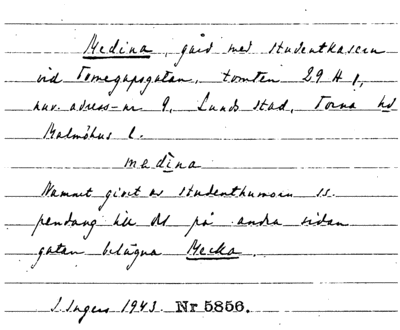 Medina, gård med studentkasern
vid Tomegapsgatan, tomten 29 H 1,
nuv. adress-nr 9, Lunds stad, Torna hd
Malmöhus l.
medina
Namnet givet av studenthumorn ss.
pendang till det på andra sidan
gatan belägna Mecka.
I. Ingers 1943. Nr 5856.